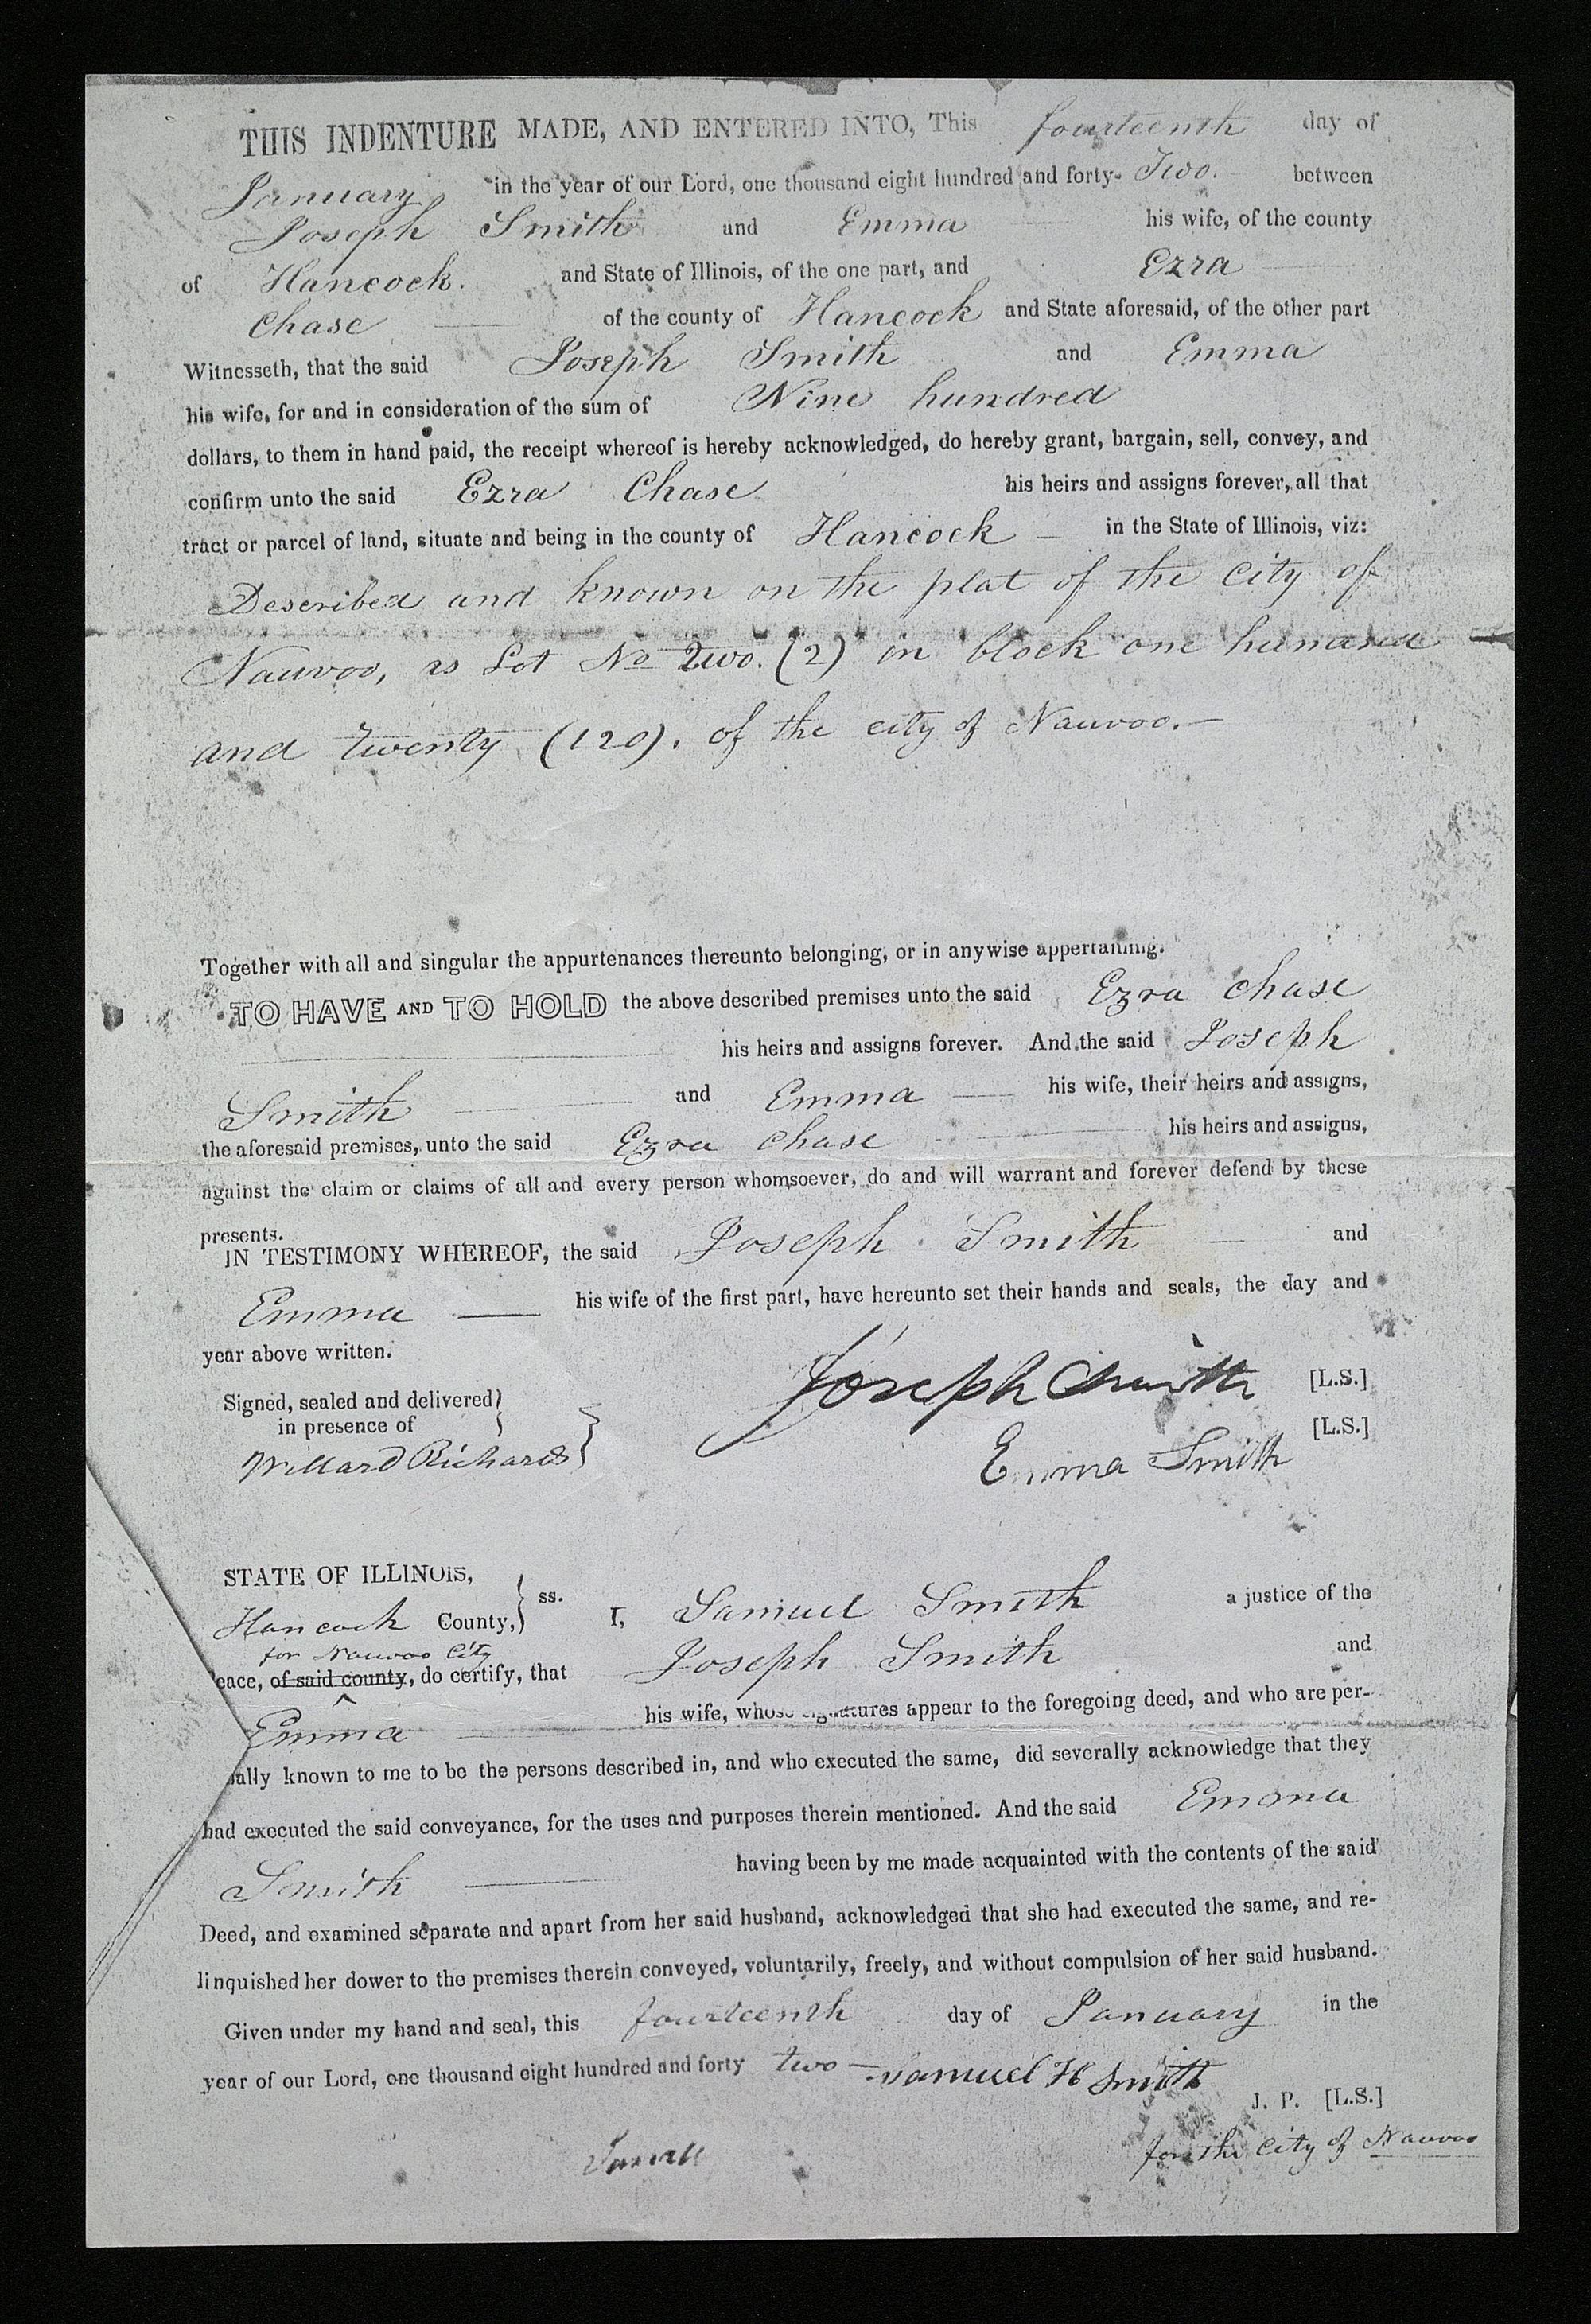 THIS INDENTURE MADE, AND ENTERED INTO, This fourteenth day of
January in the year of our Lord, one thousand eight hundred and forty- Two. between
Joseph Smith and Emma his wife, of the county
of Hancock. and State of Illinois, of the one part, and Ezra
Chase of the county of Hancock and State aforesaid, of the other part
Witnesseth, that the said Joseph Smith and Emma
his wife, for and in consideration of the sum of Nine hundred
dollars, to them in hand paid, the receipt whereof is hereby acknowledged, do hereby grant, bargain, sell, convey, and
confirm unto the said Ezra Chase his heirs and assigns forever, all that
tract or parcel of land, situate and being in the county of Hancock — in the State of Illinois, viz:
Described and known on the plat of the city of
Nauvoo, as Lot No Two. (2) in block one hundred
and twenty (120). of the city of Nauvoo.—
Together with all and singular the appurtenances thereunto belonging, or in anywise appertaining.
TO HAVE AND TO HOLD the above described premises unto the said Ezra Chase
his heirs and assigns forever. And the said Joseph
Smith — and Emma — his wife, their heirs and assigns,
the aforesaid premises, unto the said Ezra Chase his heirs and assigns,
against the claim or claims of all and every person whomsoever, do and will warrant and forever defend by these
presents.
IN TESTIMONY WHEREOF, the said Joseph Smith — and
Emma — his wife of the first part, have hereunto set their hands and seals, the day and
year above written.
Signed, sealed and delivered
in presence of
Willard Richards
Joseph Smith [L.S.]
Emma Smith [L.S.]
STATE OF ILLINOIS,
Hancock County, ss. I, Samuel Smith a justice of the
for Nauvoo City
eace, of said county, do certify, that Joseph Smith and
Emma his wife, whose signatures appear to the foregoing deed, and who are per-
ally known to me to be the persons described in, and who executed the same, did severally acknowledge that they
had executed the said conveyance, for the uses and purposes therein mentioned. And the said Emma
Smith — having been by me made acquainted with the contents of the said
Deed, and examined separate and apart from her said husband, acknowledged that she had executed the same, and re-
linquished her dower to the premises therein conveyed, voluntarily, freely, and without compulsion of her said husband.
Given under my hand and seal, this fourteenth day of January in the
year of our Lord, one thousand eight hundred and forty two — Samuel H Smith
J. P. [L.S.]
for the City of Nauvoo